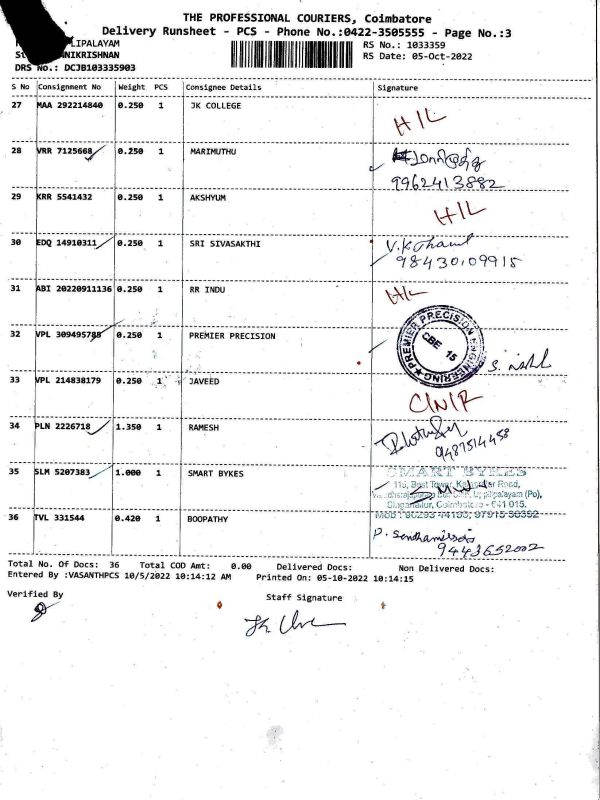 THE PROFESSIONAL COURIERS, Coimbatore
Delivery Runsheet - PCS - Phone No.:0422-3505555 - Page No.:3
LIPALAYAM
RS No.: 1033359
NIKRISHNAN
RS Date: 05-Oct-2022
DRS No.: DCJB103335903
S No Consignment No Weight PCS Consignee Details Signature
27 MAA 292214840 0.250 1 JK COLLEGE H/L
28 VRR 7125668 0.250 1 MARIMUTHU
9962413882
29 KRR 5541432 0.250 1 AKSHYUM H/L
30 EDQ 14910311 0.250 1 SRI SIVASAKTHI
98430109915
31 ABI 20220911136 0.250 1 RR INDU H/L
32 VPL 309495785 0.250 1 PREMIER PRECISION
PREMIER PRECISION ENGINEERING
CBE 15
33 VPL 214838179 0.250 1 JAVEED C/N/R
34 PLN 2226718 1.350 1 RAMESH
9487514458
35 SLM 5207383 1.000 1 SMART BYKES
SMART BYKES
Singanallur, Coimbatore - 641 015.
36 TVL 331544 0.420 1 BOOPATHY
9443652002
Total No. Of Docs: 36 Total COD Amt: 0.00 Delivered Docs: Non Delivered Docs:
Entered By :VASANTHPCS 10/5/2022 10:14:12 AM Printed On: 05-10-2022 10:14:15
Verified By Staff Signature